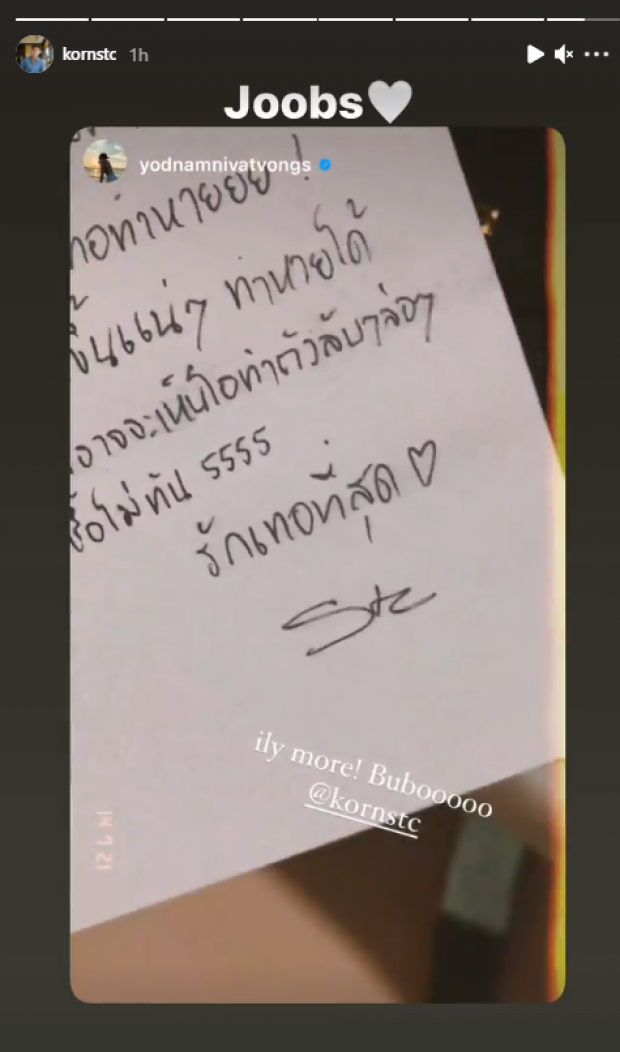 kornstc 1h
Joobs🤍
yodnamnivatvongs
ทำหายยย !
ขึ้นแน่ๆ ทำหายได้
อาจจะเห็นไอทำตัวลับๆล่อๆ
ไม่ทัน 5555
รักเทอที่สุด ♡
Stc
ily more! Bubooooo
@kornstc